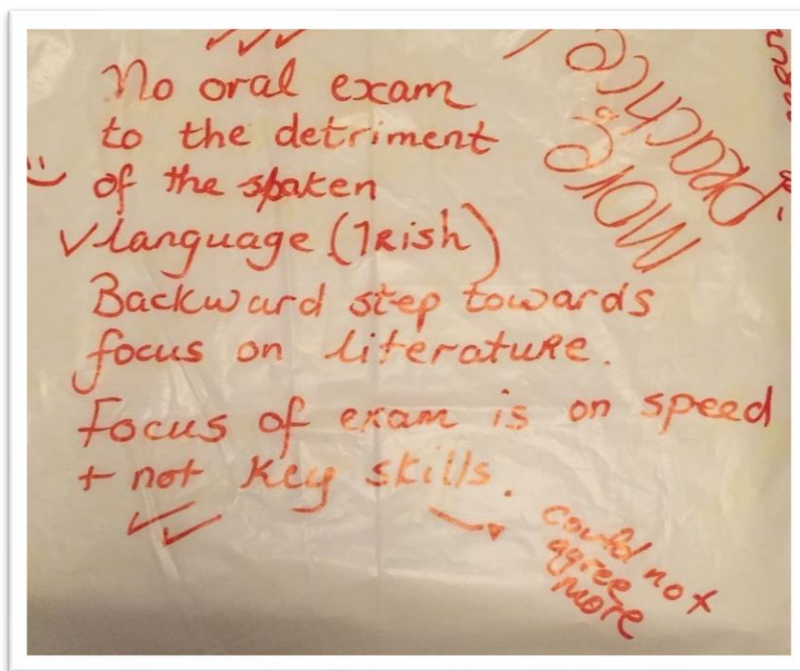 No oral exam
to the detriment
of the spoken
language (IRish)
Backward step towards
focus on literature.
Focus of exam is on speed
+ not key skills.
could not
agree
more
More
practice